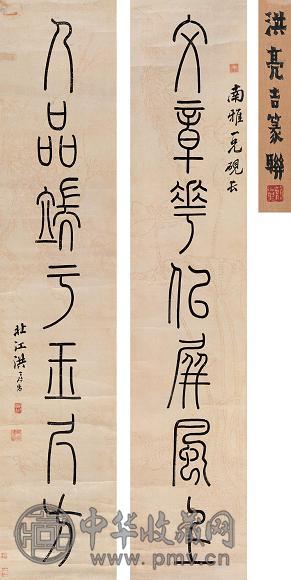 洪亮吉篆聯
南雅一兄硯長
文章華似屏風上
人品端于玉尺方
北江洪亮吉
中华收藏网
www.pmv.cn